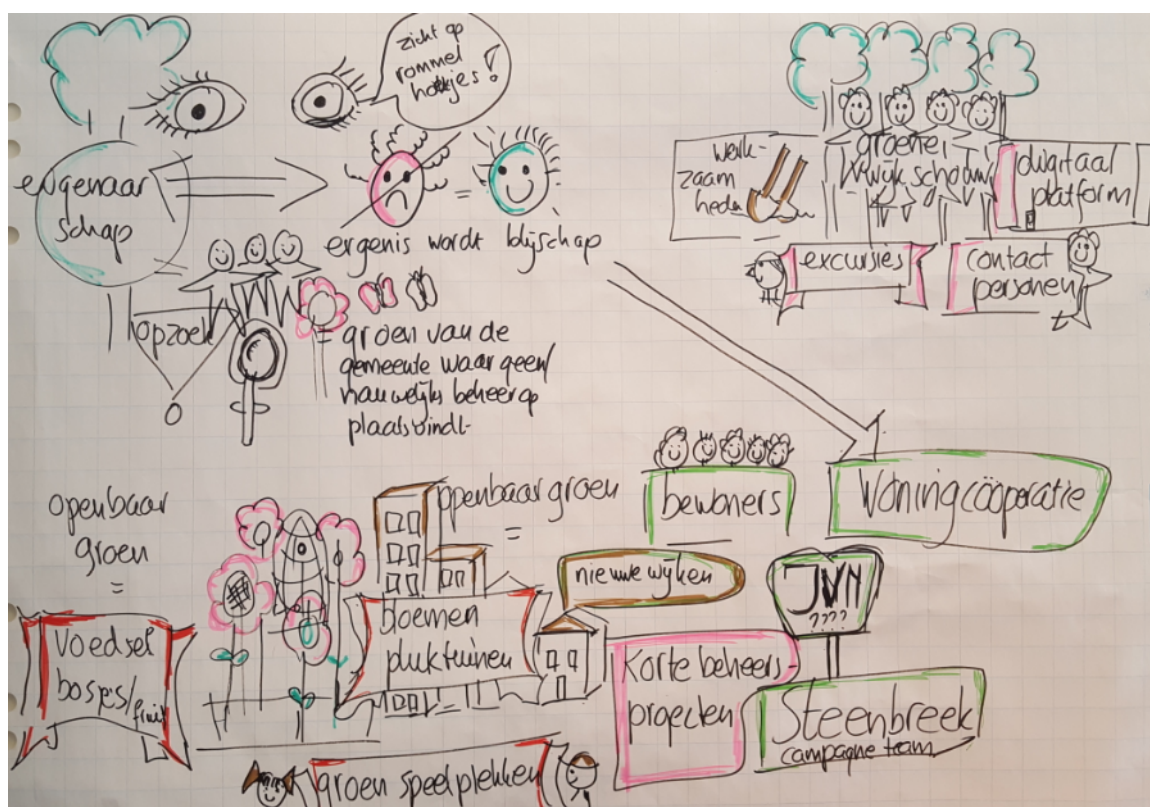 zicht op
rommel
hoekjes!
eigenaar
schap
ergenis wordt blijschap
opzoek
= groen van de
gemeente waar geen/
nauwelijks beheer op
plaatsvindt
werk-
zaam
heden
groene
wijk schouw
digitaal
platform
excursies
contact
personen
openbaar
groen
=
voedsel
bosjes/
fruit
bloemen
pluktuinen
groen speelplekken
oppenbaar groen
=
bewoners
Woningcoöperatie
nieuwe wijken
JVN
????
Korte beheers-
projecten
Steenbreek
campagne team